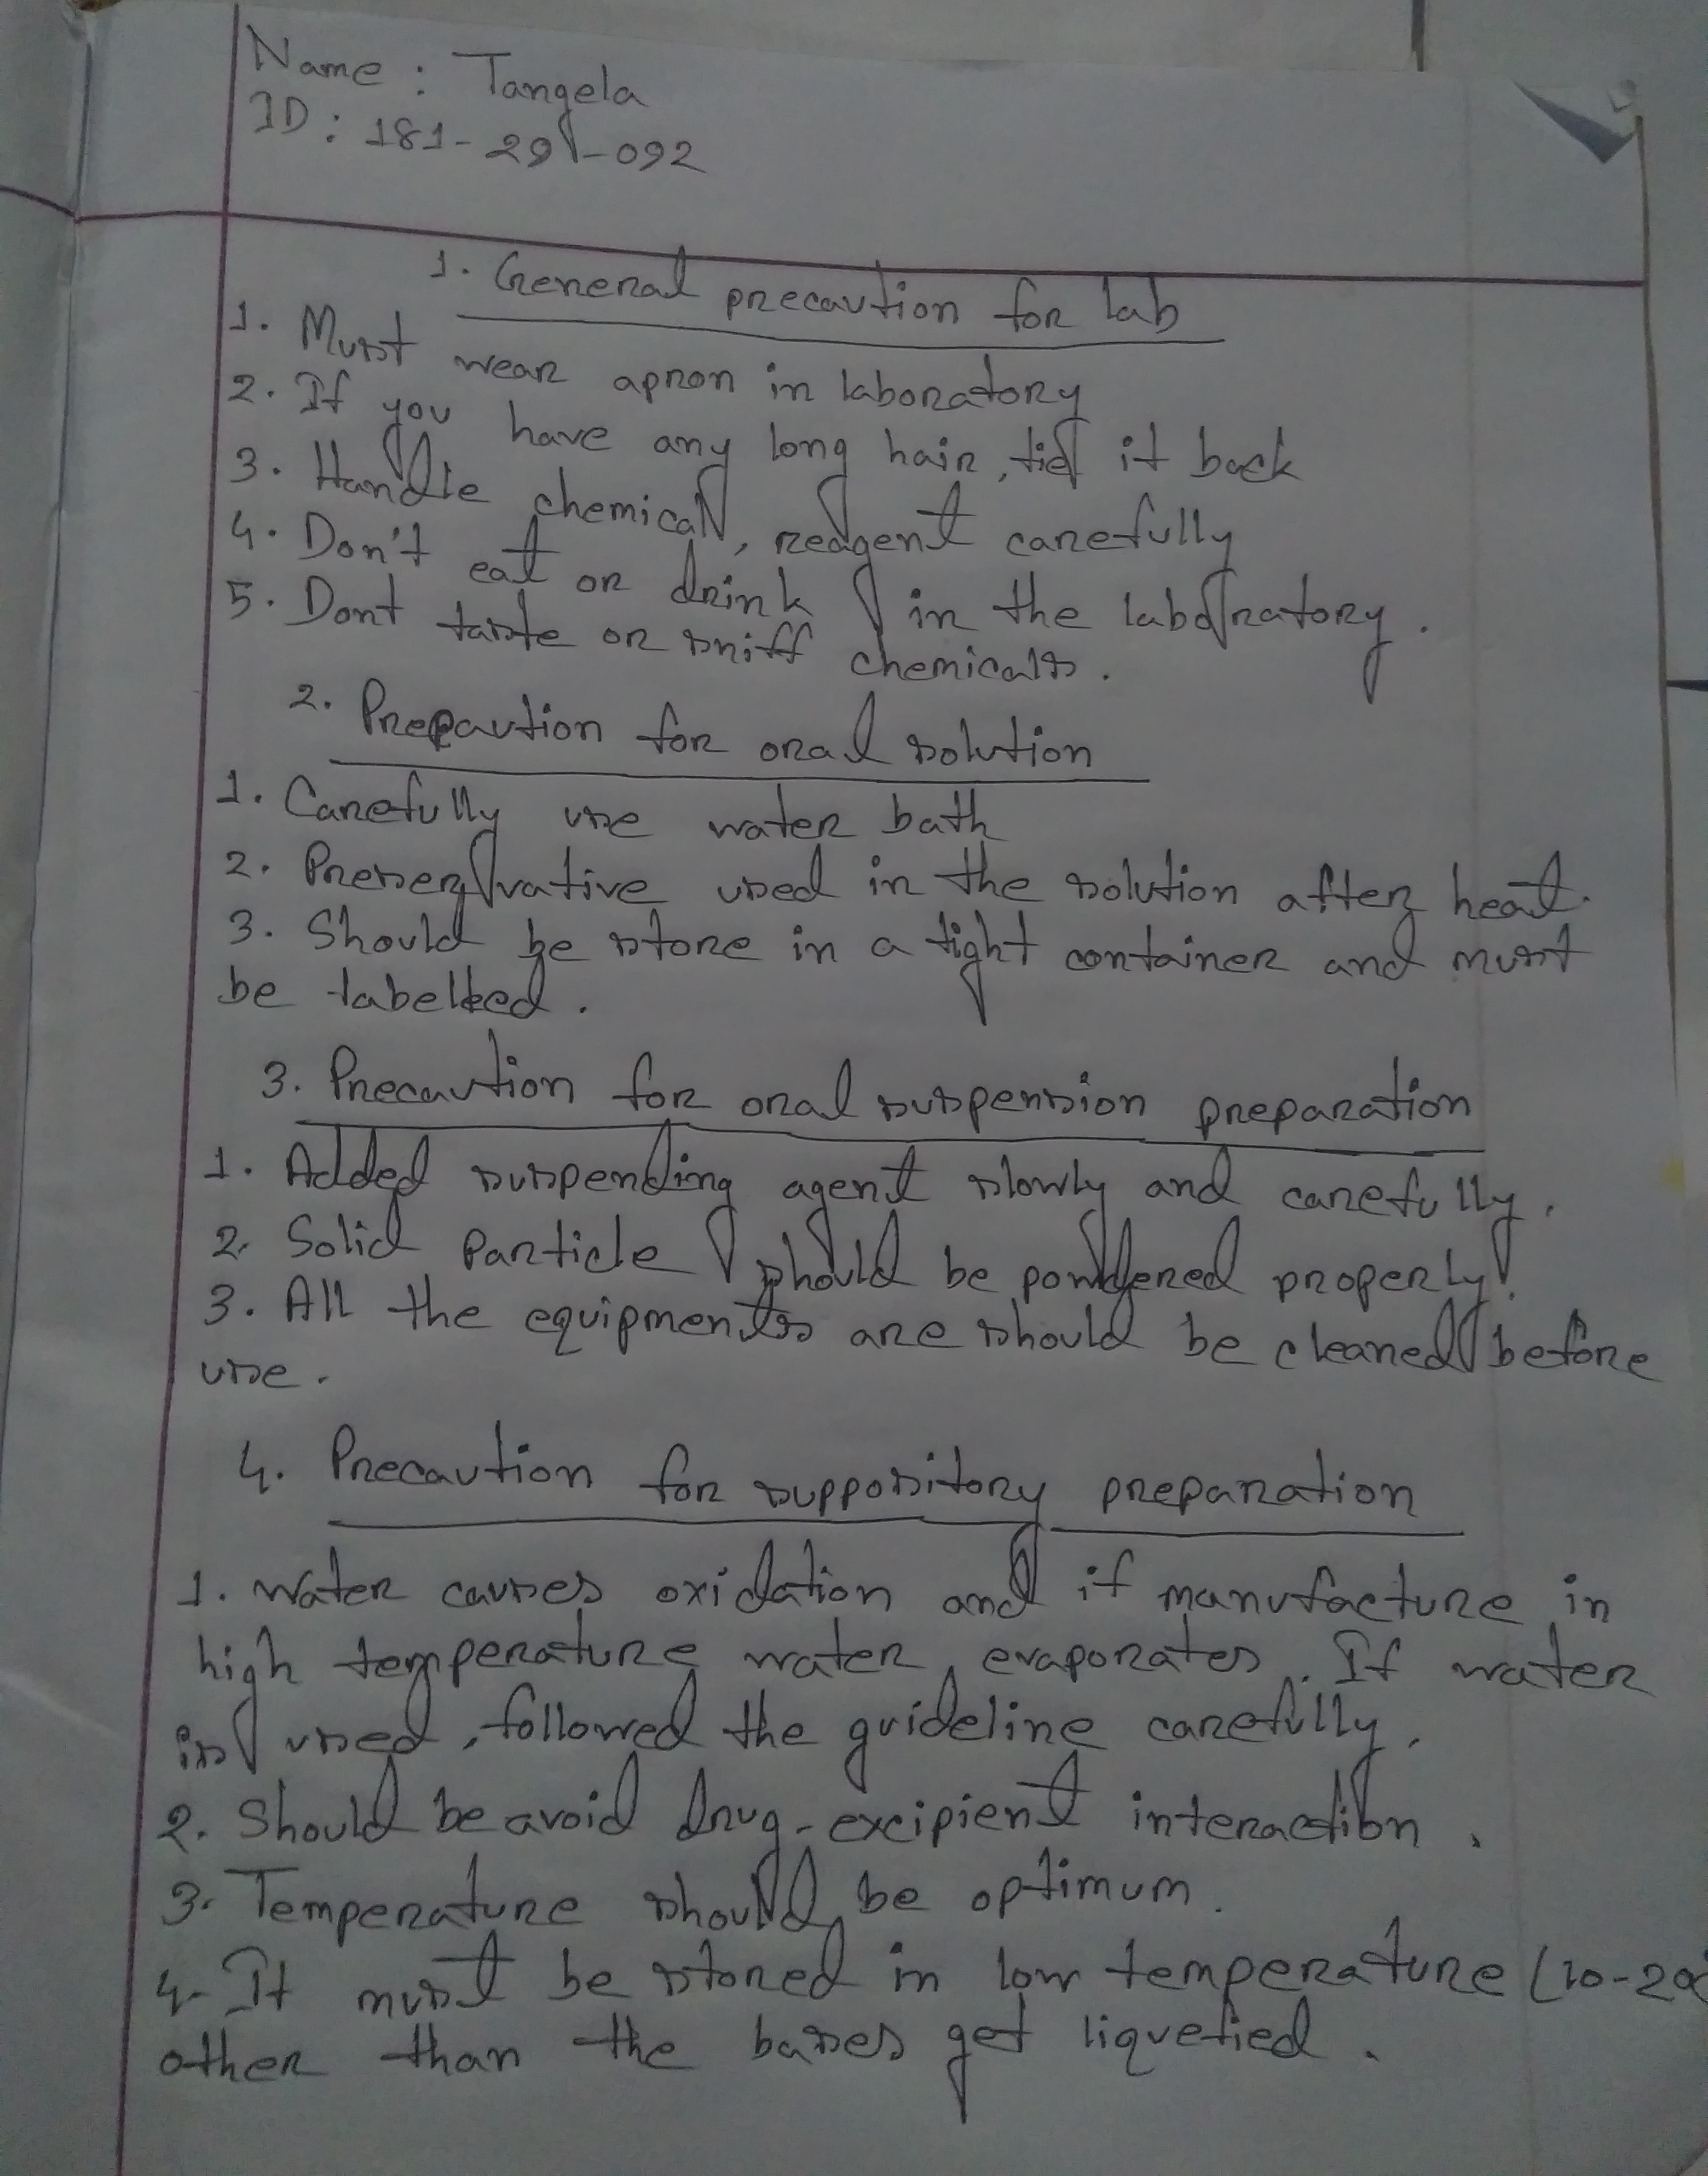 Name : Tangela
ID : 181-29-092
1. General precaution for lab
1. Must wear apron in laboratory
2. If you have any long hair, tied it back
3. Handle chemical, reagent carefully
4. Don't eat or drink in the laboratory.
5. Dont taste or sniff chemicals.
2. Precaution for oral solution
1. Carefully use water bath
2. Preservative used in the solution after heat.
3. Should be store in a tight container and must
be labelled.
3. Precaution for oral suspension preparation
1. Added suspending agent slowly and carefully.
2. Solid Particle should be powdered properly.
3. All the equipments are should be cleaned before
use.
4. Precaution for suppository preparation
1. Water causes oxidation and if manufacture in
high temperature water evaporates. If water
is used, followed the guideline carefully.
2. Should be avoid drug-excipient interaction.
3. Temperature should be optimum.
4. It must be stored in low temperature (10-20
other than the bases get liquefied.